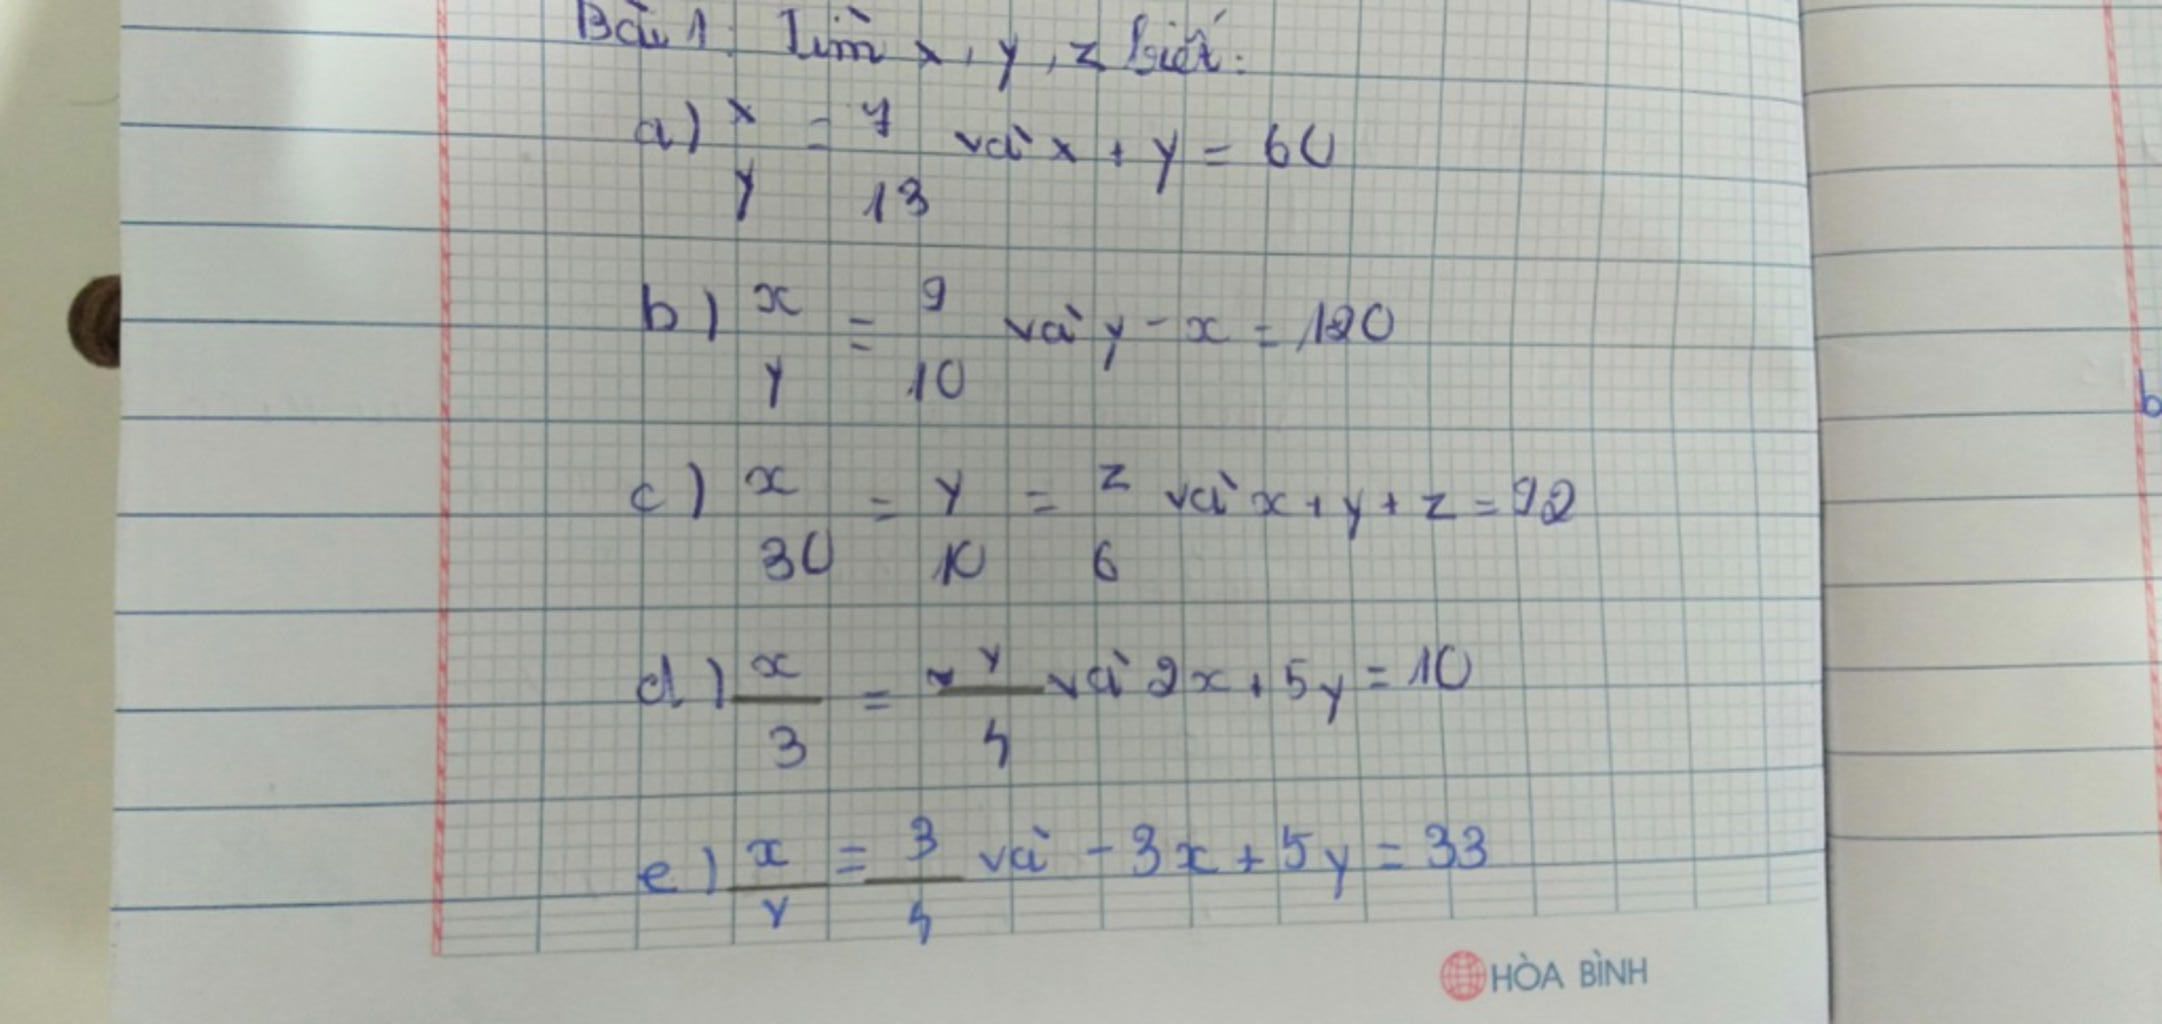 Bài 1: Tìm x, y, z biết:
a) x/y = 7/13 và x + y = 60
b) x/y = 9/10 và y - x = 120
c) x/30 = y/10 = z/6 và x + y + z = 92
d) x/3 = y/4 và 2x + 5y = 10
e) x/y = 3/4 và -3x + 5y = 33
HÒA BÌNH
b